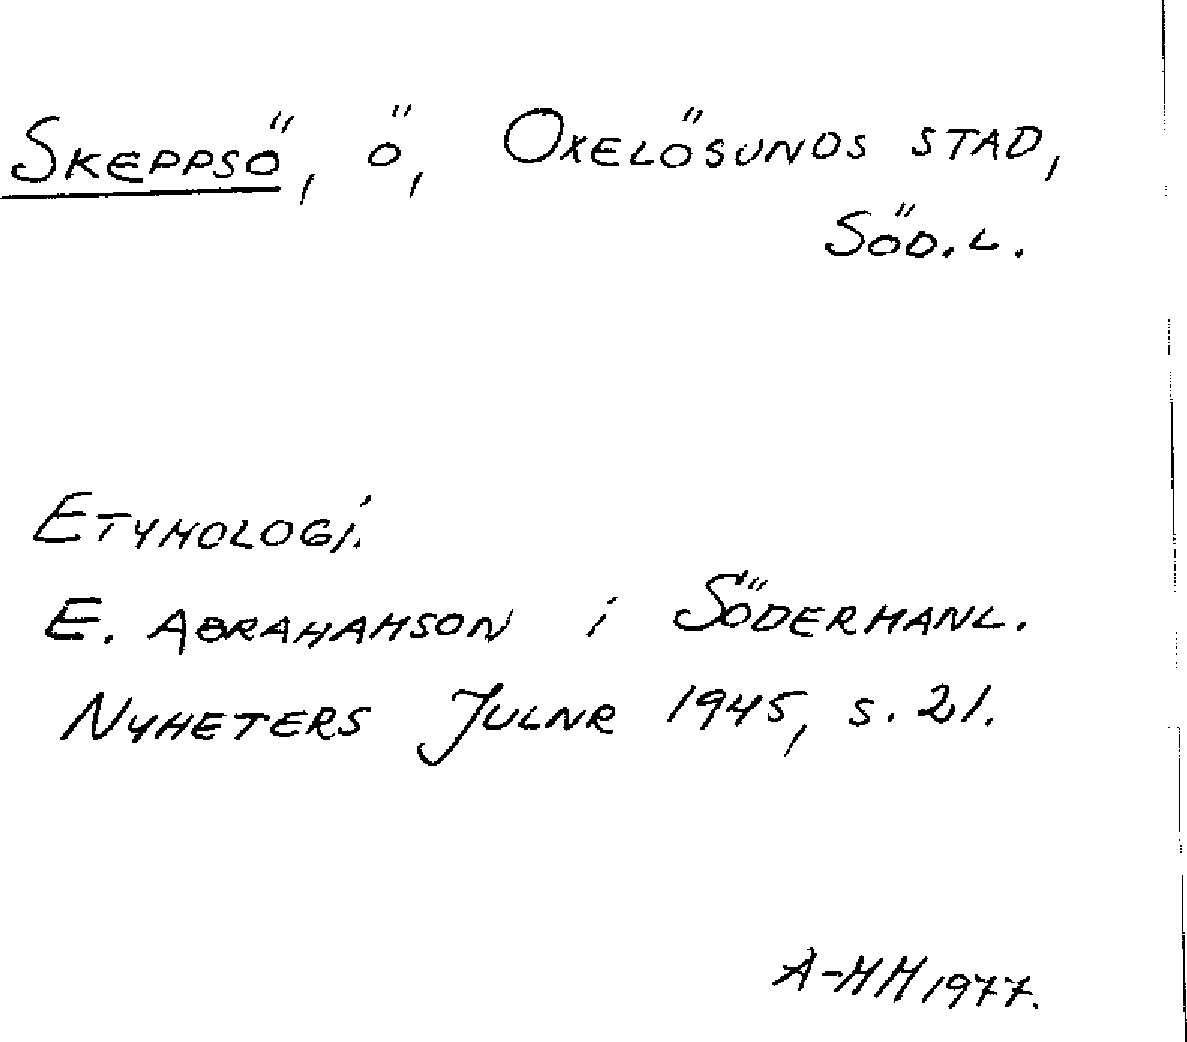 Skeppsö, ö, Oxelösunds stad,
Söd.l.
Etymologi.
E. Abrahamson i Södermanl.
Nyheters Julnr 1945, s. 21.
A-MM 1977.